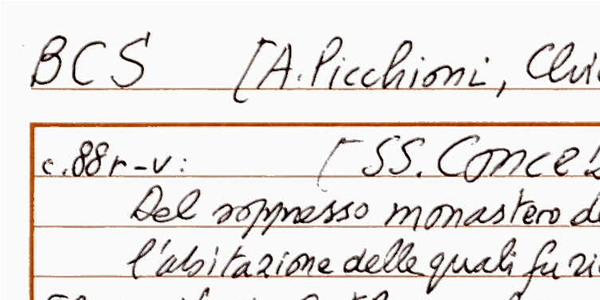 BCS [A. Picchioni,
c.88r-v: [SS.
Del soppresso monastero
l'abitazione delle quali fu